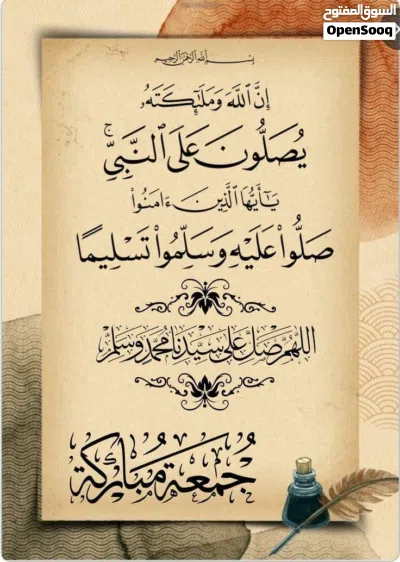 السوق المفتوح
OpenSooq
بسم الله الرحمن الرحيم
إِنَّ ٱللَّهَ وَمَلَٰٓئِكَتَهُۥ
يُصَلُّونَ عَلَى ٱلنَّبِيِّۚ
يَٰٓأَيُّهَا ٱلَّذِينَ ءَامَنُوا۟
صَلُّوا۟ عَلَيْهِ وَسَلِّمُوا۟ تَسْلِيمًا
اللهم صل على سيدنا محمد وسلم
جُمعَة مُبَاركة